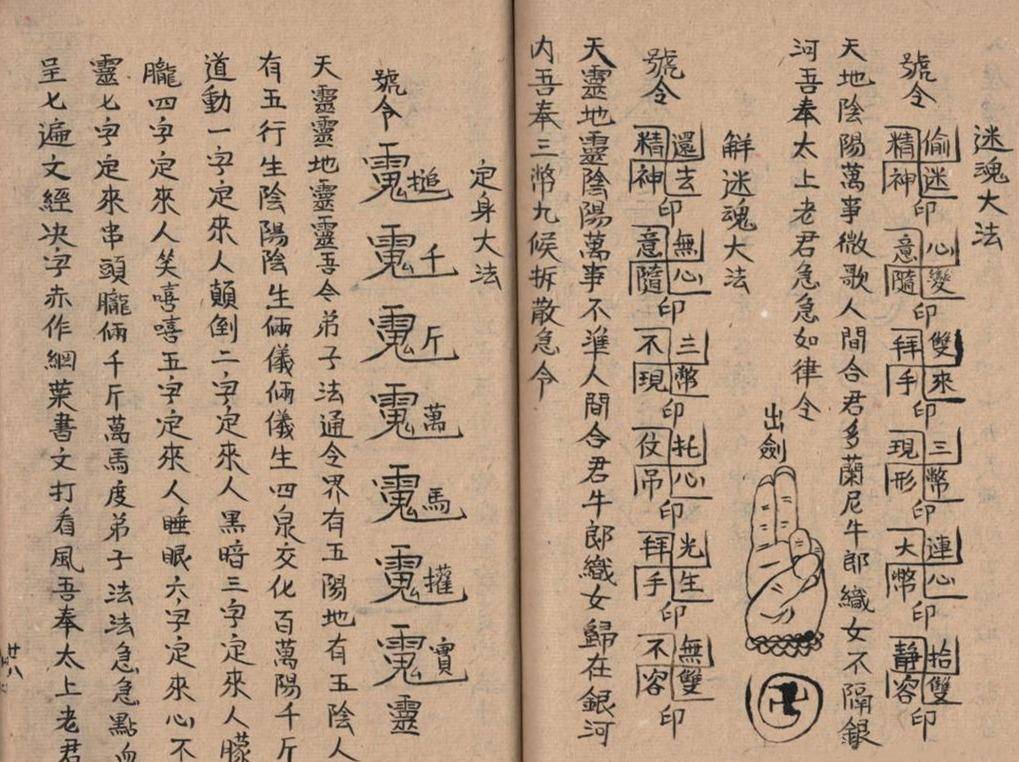 迷魂大法
號令 偷迷精神印 心變意隨印 雙來拜手印 三幣現形印 連心大幣印 拾雙靜容印
天地陰陽萬事微歌人間合君多蘭尼牛郎織女不隔銀
河吾奉太上老君急急如律令
出劍
卍
解迷魂大法
號令 還去精神印 無心意隨印 三幣不現印 托心仗吊印 光生拜手印 無雙不容印
天靈地靈陰陽萬事不準人間合君牛郎織女歸在銀河
内吾奉三幣九候拆散急令
定身大法
號令 槌 千 斤 萬 馬 權 寶 靈
天靈靈地靈靈吾令弟子法通令界有五陽地有五陰人
有五行生陰陽陰生倆儀倆儀生四泉交化百萬陽千斤
道動一字定來人顛倒二字定來人黑暗三字定來人朦
朧四字定來人笑嘻嘻五字定來人睡眼六字定來心不
靈七字定來串頭朧倆千斤萬馬度弟子法法急急點血
呈七遍文經决字赤作綑葉書文打看風吾奉太上老君
廿八